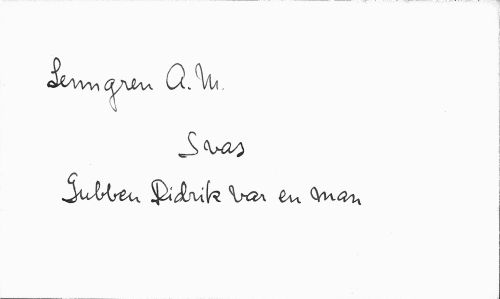 Lenngren A.M.
Svas
Gubben Didrik var en man